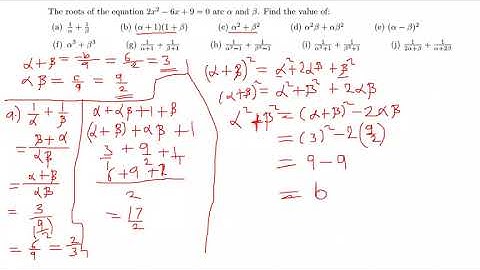 The roots of the equation 2x² − 6x + 9 = 0 are α and β. Find the value of:
(a) 1/α + 1/β (b) (α + 1)(1 + β) (c) α² + β² (d) α²β + αβ² (e) (α − β)²
(f) α³ + β³ (g) 1/(α+1) + 1/(β+1) (h) (i) (j)
α + β = -b/a = 6/2 = 3
αβ = c/a = 9/2
a) 1/α + 1/β
= (β + α)/αβ
= (α + β)/αβ
= 3/(9/2)
= 6/9 = 2/3
α + αβ + 1 + β
(α + β) + αβ + 1
3/1 + 9/2 + 1/1
(6 + 9 + 2)/2
= 17/2
(α + β)² = α² + 2αβ + β²
(α + β)² = α² + β² + 2αβ
α² + β² = (α + β)² − 2αβ
= (3)² − 2(9/2)
= 9 − 9
= 0